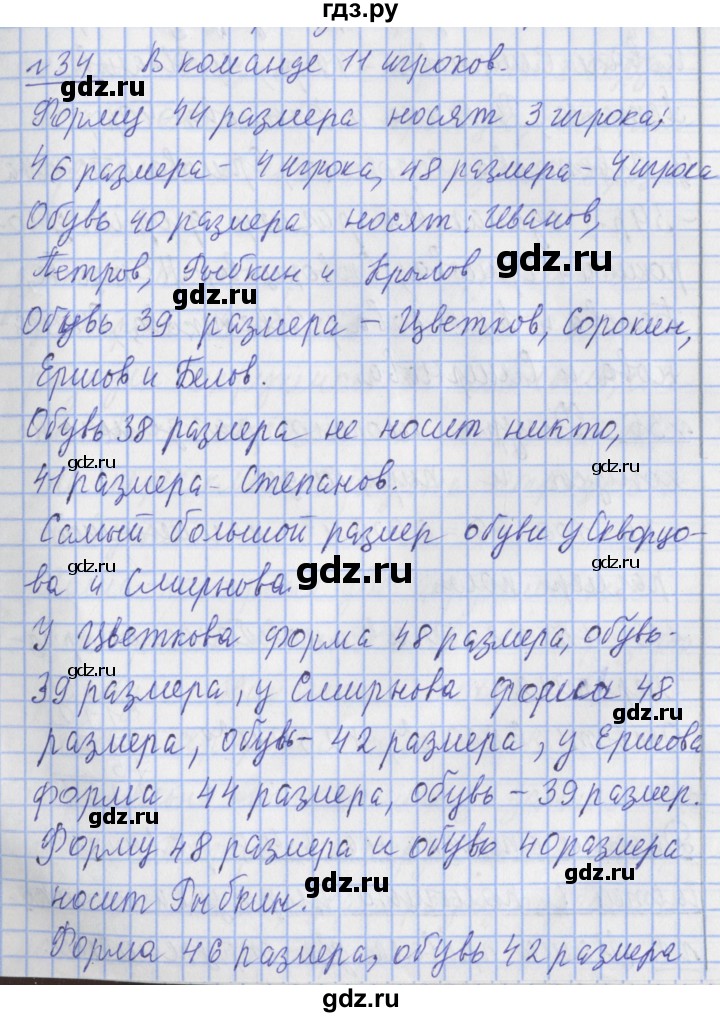 гдз.ру
№34 В команде 11 игроков.
gdz.ru
Форму 44 размера носят 3 игрока;
gdz.ru
46 размера - 4 игрока, 48 размера - 4 игрока
Обувь 40 размера носят: Иванов,
gdz.ru
Петров, Рыбкин и Крылов
gdz.ru
Обувь 39 размера - Цветков, Сорокин,
Ершов и Белов.
Обувь 38 размера не носит никто,
gdz.ru gdz.ru
41 размера - Степанов.
Самый большой размер обуви у Скворцо-
gdz.ru gdz.ru
ва и Смирнова.
gdz.ru
У Цветкова форма 48 размера, обувь -
gdz.ru
39 размера, у Смирнова форма 48
gdz.ru
размера, обувь - 42 размера, у Ершова
форма 44 размера, обувь - 39 размер.
gdz.ru
Форму 48 размера и обувь 40 размера
gdz.ru
носит Рыбкин.
gdz.ru
Форма 46 размера, обувь 42 размера
gdz.ru